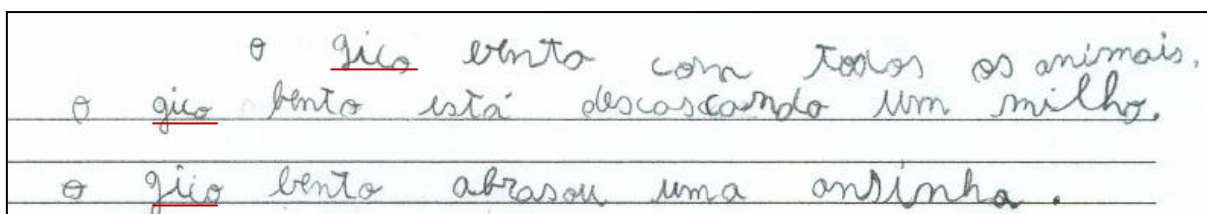 o gico bento com todos os animais.
o gico bento está descascando um milho.
o gico bento abrasou uma onsinha.